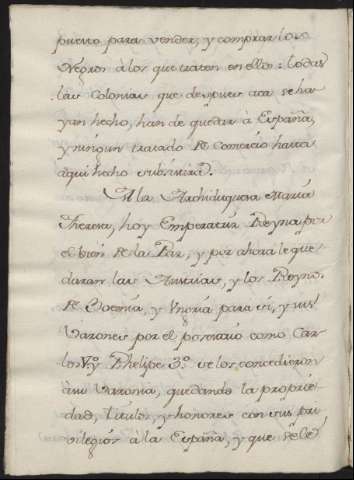 puerto para vender, y comprar los
Negros à los que traten en ellos: todas
las Colonias que despues aca se ha-
yan hecho, han de quedar à España,
y ningun tratado de Comercio hasta
aqui hecho subsistirà.
A la Archiduquesa Maria
Theresa, hoy Emperatriz Reyna por
el bien de la Paz, y por ahora le que-
daran las Austrias, y los Reynos
de Boemia, y Ungria para si, y sus
Varones por el posesorio como Car-
los Vº. y Phelipe 3º. se los concedieron
à su Varonia, quedando la propie-
dad, titulos, y honores con sus pri-
vilegios à la España, y que se le